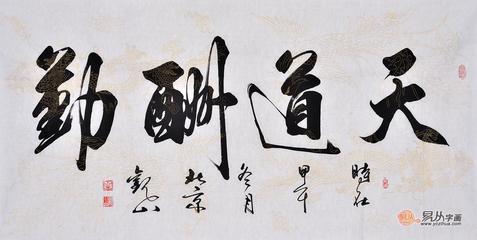 天道酬勤
時在甲午冬月北京觀山
易从字画
www.yizihua.com